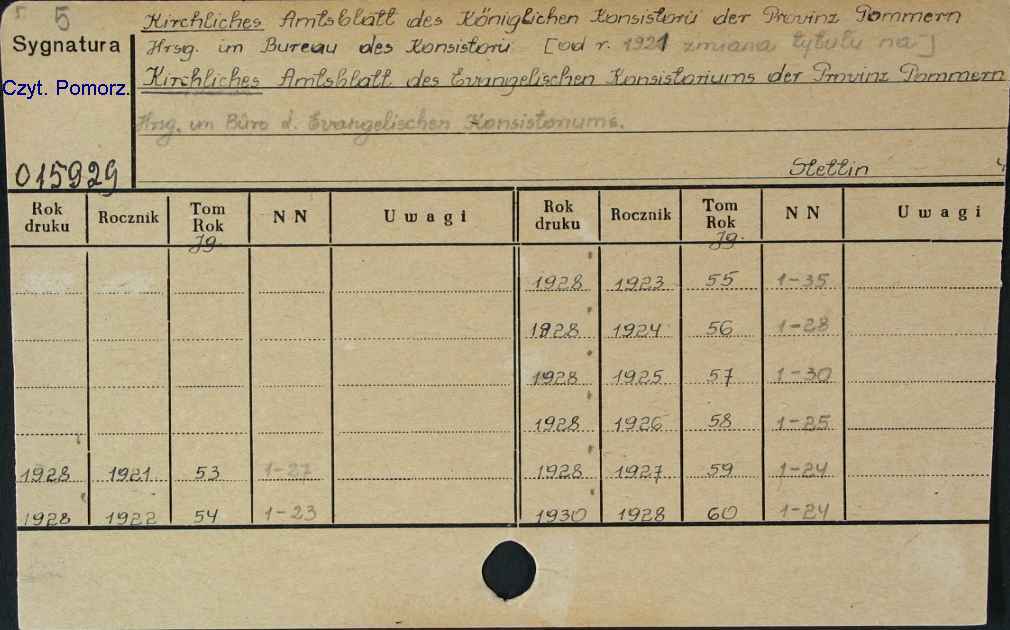 5
Sygnatura
Czyt. Pomorz.
015929
Kirchliches Amtsblatt des Königlichen Konsistorii der Provinz Pommern
Hrsg. im Bureau des Konsistorii [od r. 1921 zmiana tytułu na]
Kirchliches Amtsblatt des Evangelischen Konsistoriums der Provinz Pommern
Hrsg. im Büro d. Evangelischen Konsistoriums.
Stettin
Rok druku Rocznik Tom Rok Jg. NN Uwagi Rok druku Rocznik Tom Rok Jg. NN Uwagi
1928 1923 55 1-35
1928 1924 56 1-28
1928 1925 57 1-30
1928 1926 58 1-25
1928 1921 53 1-27 1928 1927 59 1-24
1928 1922 54 1-23 1930 1928 60 1-24